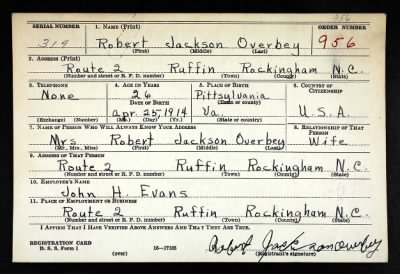 956
SERIAL NUMBER 1. NAME (Print) ORDER NUMBER
319 Robert Jackson Overbey 956
(First) (Middle) (Last)
2. ADDRESS (Print)
Route 2 Ruffin Rockingham N.C.
(Number and street or R. F. D. number) (Town) (County) (State)
3. TELEPHONE 4. AGE IN YEARS 5. PLACE OF BIRTH 6. COUNTRY OF CITIZENSHIP
None 26 Pittsylvania
DATE OF BIRTH (Town or county)
Apr. 25, 1914 Va. U.S.A.
(Exchange) (Number) (Mo.) (Day) (Yr.) (State or country)
7. NAME OF PERSON WHO WILL ALWAYS KNOW YOUR ADDRESS 8. RELATIONSHIP OF THAT PERSON
Mrs Robert Jackson Overbey Wife
(Mr., Mrs., Miss) (First) (Middle) (Last)
9. ADDRESS OF THAT PERSON
Route 2 Ruffin Rockingham N.C.
(Number and street or R. F. D. number) (Town) (County) (State)
10. EMPLOYER'S NAME
John H. Evans
11. PLACE OF EMPLOYMENT OR BUSINESS
Route 2 Ruffin Rockingham N.C.
(Number and street or R. F. D. number) (Town) (County) (State)
I AFFIRM THAT I HAVE VERIFIED ABOVE ANSWERS AND THAT THEY ARE TRUE.
REGISTRATION CARD
D. S. S. Form 1 (over) 16—17105 Robert Jackson Overbey
(Registrant's signature)